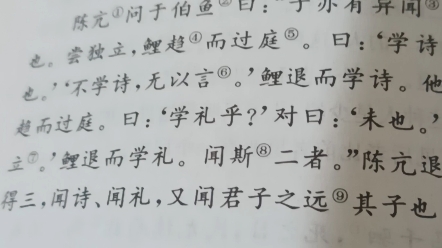 陈亢①问于伯鱼②曰：“子亦有异闻③
也。尝独立，鲤趋④而过庭⑤。曰：‘学诗
也。’‘不学诗，无以言⑥。’鲤退而学诗。他
趋而过庭。曰：‘学礼乎？’对曰：‘未也。’
立⑦。’鲤退而学礼。闻斯⑧二者。”陈亢退
得三，闻诗、闻礼，又闻君子之远⑨其子也